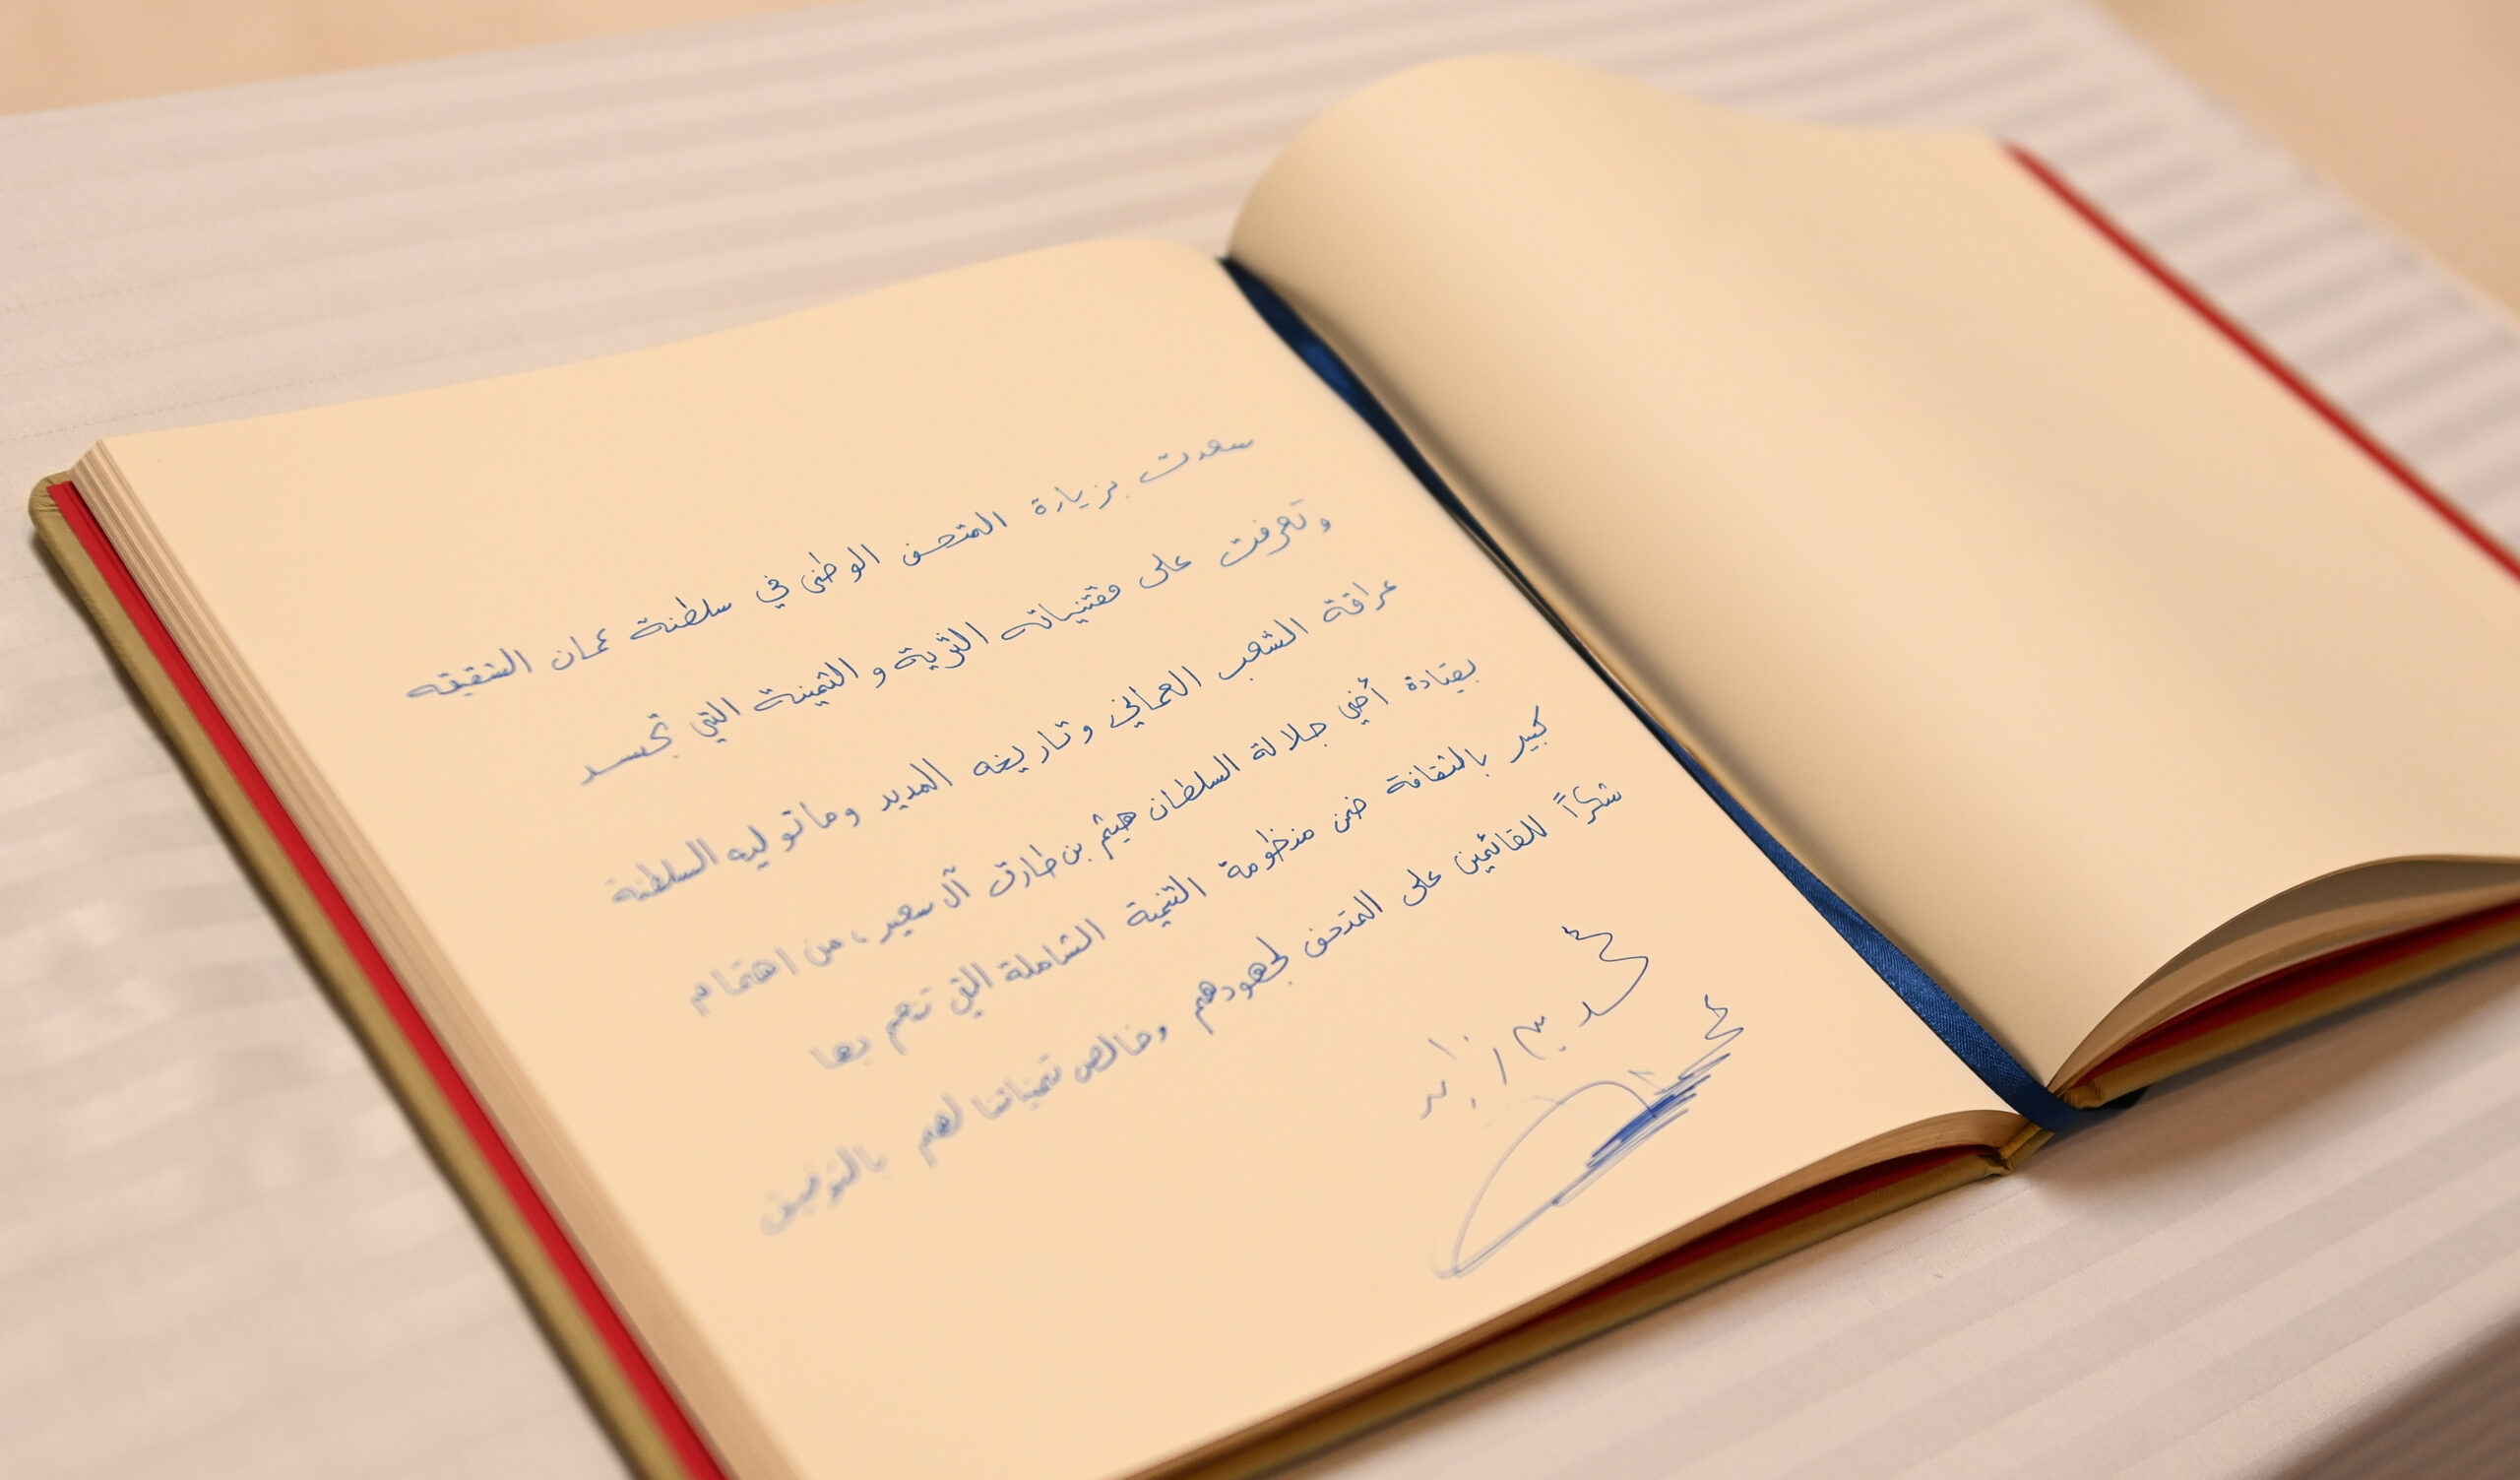 سعدت بزيارة المتحف الوطني في سلطنة عمان الشقيقه
وتعرفت على مقتنياته الثرية و الثمينة التي تجسد
عراقة الشعب العماني وتاريخه المديد وما توليه السلطنة
بقيادة أخي جلالة السلطان هيثم بن طارق آل سعيد ، من اهتمام
كبير بالثقافة ضمن منظومة التنمية الشاملة التي تهم بها
شكراً للقائمين على المتحف لجهودهم وخالص تمنياتنا لهم بالتوفيق
محمد بن زايد